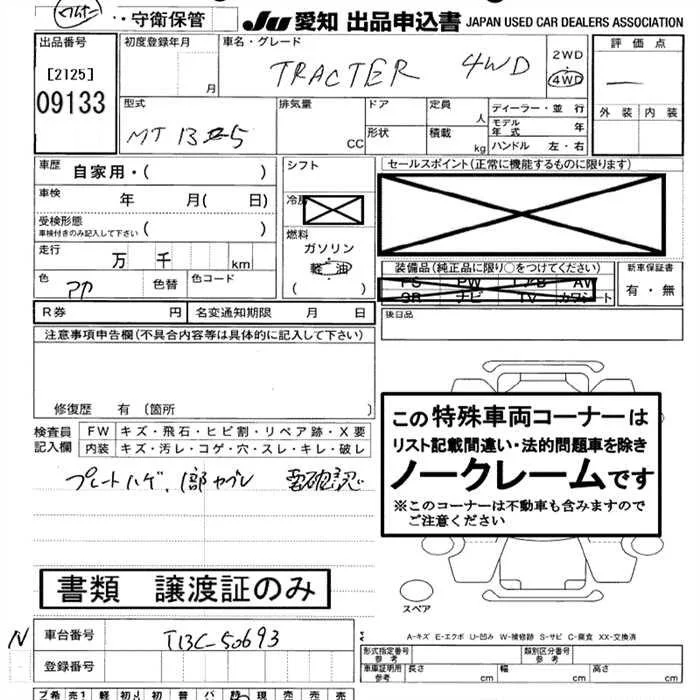 ・守衛保管
JU 愛知 出品申込書 JAPAN USED CAR DEALERS ASSOCIATION
出品番号
[2125]
09133
初度登録年月
月
車名・グレード
TRACTER 4WD
2WD
4WD
評価点
外装 内装
型式
MT13
排気量
CC
ドア
形状
定員
人
積載
kg
ディーラー・並行
モデル年式 年
ハンドル 左・右
車歴 自家用・( )
車検 年 月( 日)
受検形態
車検付きのみ記入して下さい ( )
走行 万 千 km
色 アカ 色替 色コード
シフト
冷房
燃料
ガソリン
軽油
( )
セールスポイント(正常に機能するものに限ります)
装備品(純正品に限り○をつけてください)
PS PW エアB AW
SR ナビ TV カワシート
新車保証書
有・無
R券 円 名変通知期限 月 日
後日品
注意事項申告欄(不具合内容等は具体的に記入して下さい)
修復歴 有〔箇所 〕
検査員記入欄
FW キズ・飛石・ヒビ割・リペア跡・X要
内装 キズ・汚レ・コゲ・穴・スレ・キレ・破レ
プレートハゲ、1部ヤブレ 要確認
この特殊車両コーナーは
リスト記載間違い・法的問題車を除き
ノークレームです
※このコーナーは不動車も含みますので
ご注意ください
書類 譲渡証のみ
スペア
N 車台番号 T13C-50693
登録番号
A-キズ E-エクボ U-凹み W-補修跡 S-サビ C-腐食 XX-交換済
形式指定番号
参考
類別区分番号
参考
車庫証明用
参考
長さ cm 幅 cm 高さ cm